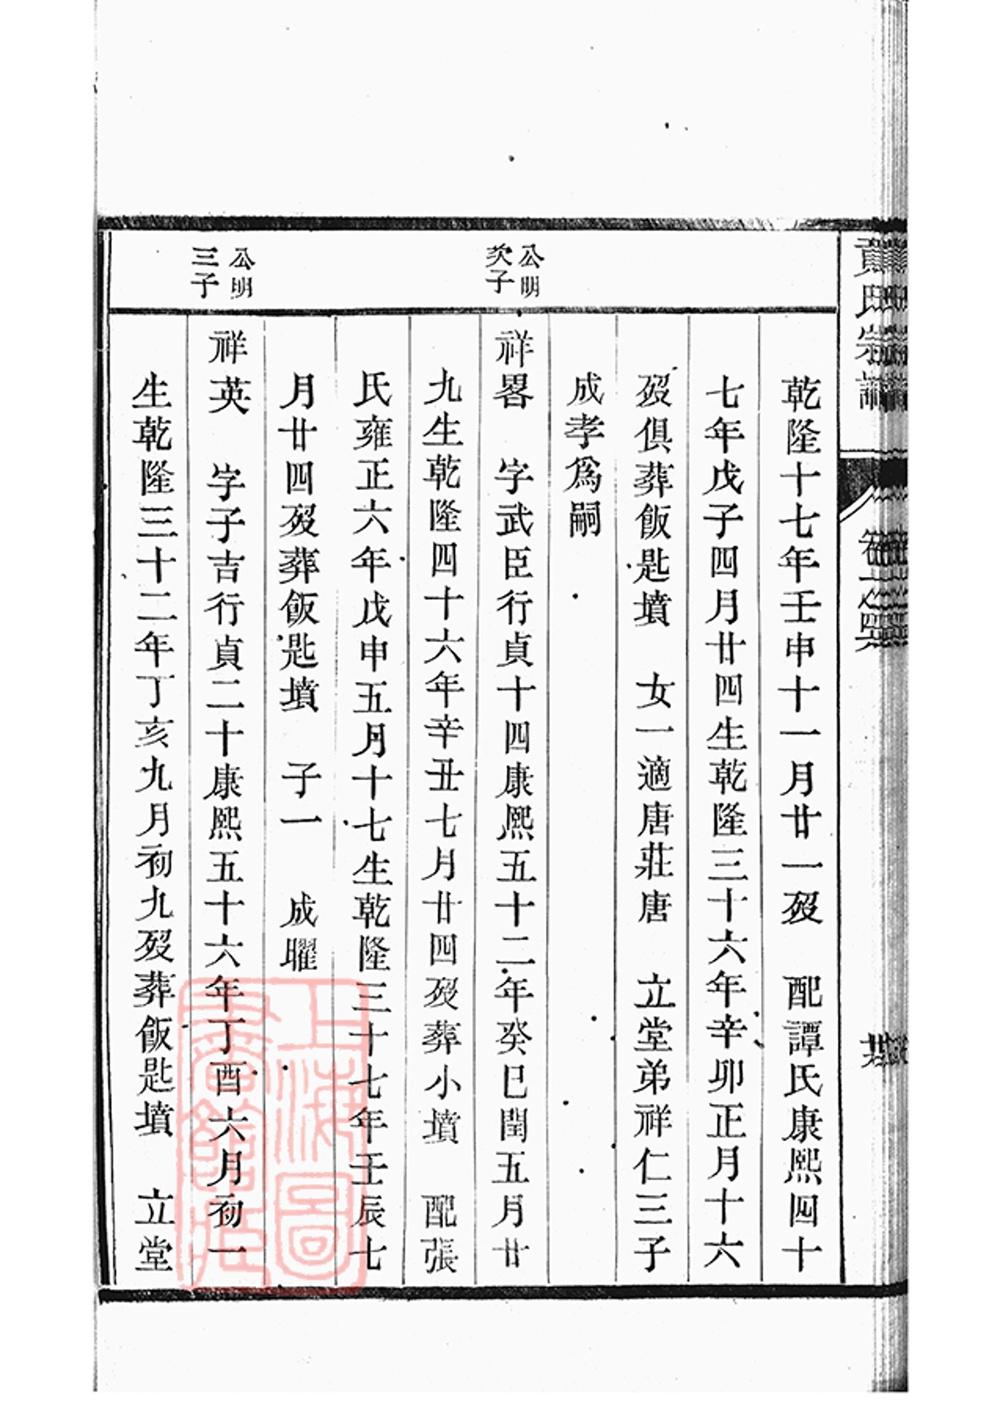 氏宗譜
乾隆十七年壬申十一月廿一歿 配譚氏康熙四十
七年戊子四月廿四生乾隆三十六年辛卯正月十六
歿俱葬飯匙墳 女一適唐莊唐 立堂弟祥仁三子
成孝爲嗣
公明
次子
祥畧 字武臣行貞十四康熙五十二年癸巳閏五月廿
九生乾隆四十六年辛丑七月廿四歿葬小墳 配張
氏雍正六年戊申五月十七生乾隆三十七年壬辰七
月廿四歿葬飯匙墳 子一 成曜
公明
三子
祥英 字子吉行貞二十康熙五十六年丁酉六月初一
生乾隆三十二年丁亥九月初九歿葬飯匙墳 立堂
上海圖
書館藏